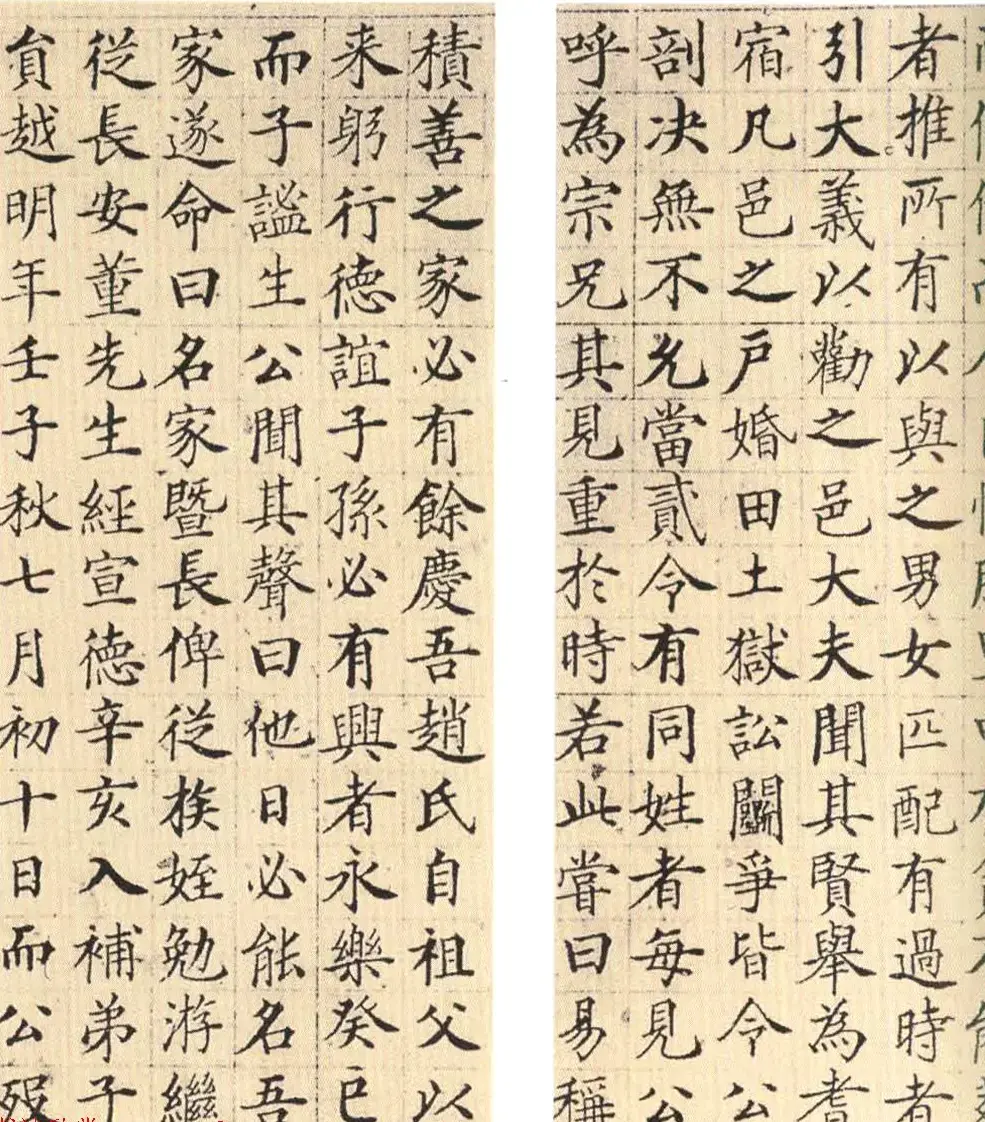 者推所有以與之男女匹配有過時者
引大義以勸之邑大夫聞其賢舉為耆
宿凡邑之戶婚田土獄訟鬭爭皆令公
剖决無不允當貳令有同姓者每見公
呼為宗兄其見重於時若此嘗曰易稱
積善之家必有餘慶吾趙氏自祖父以
来躬行德誼子孫必有興者永樂癸巳
而子謐生公聞其聲曰他日必能名吾
家遂命曰名家暨長俾從族姪勉游繼
從長安董先生經宣德辛亥入補弟子
貟越明年壬子秋七月初十日而公歿